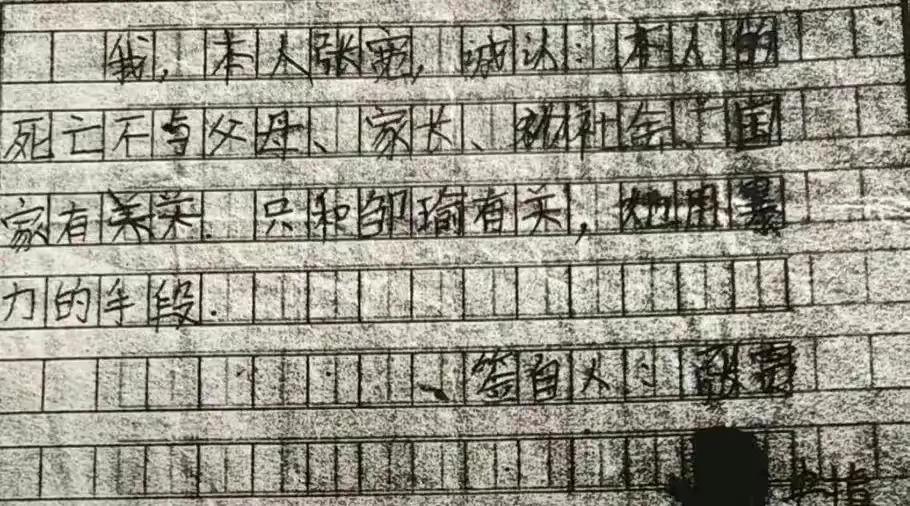 我，本人张宽，诚认：本人的
死亡不与父母、家长、和社会、国
家有关. 只和邹瑜有关，她用暴
力的手段.
签自人：张宽